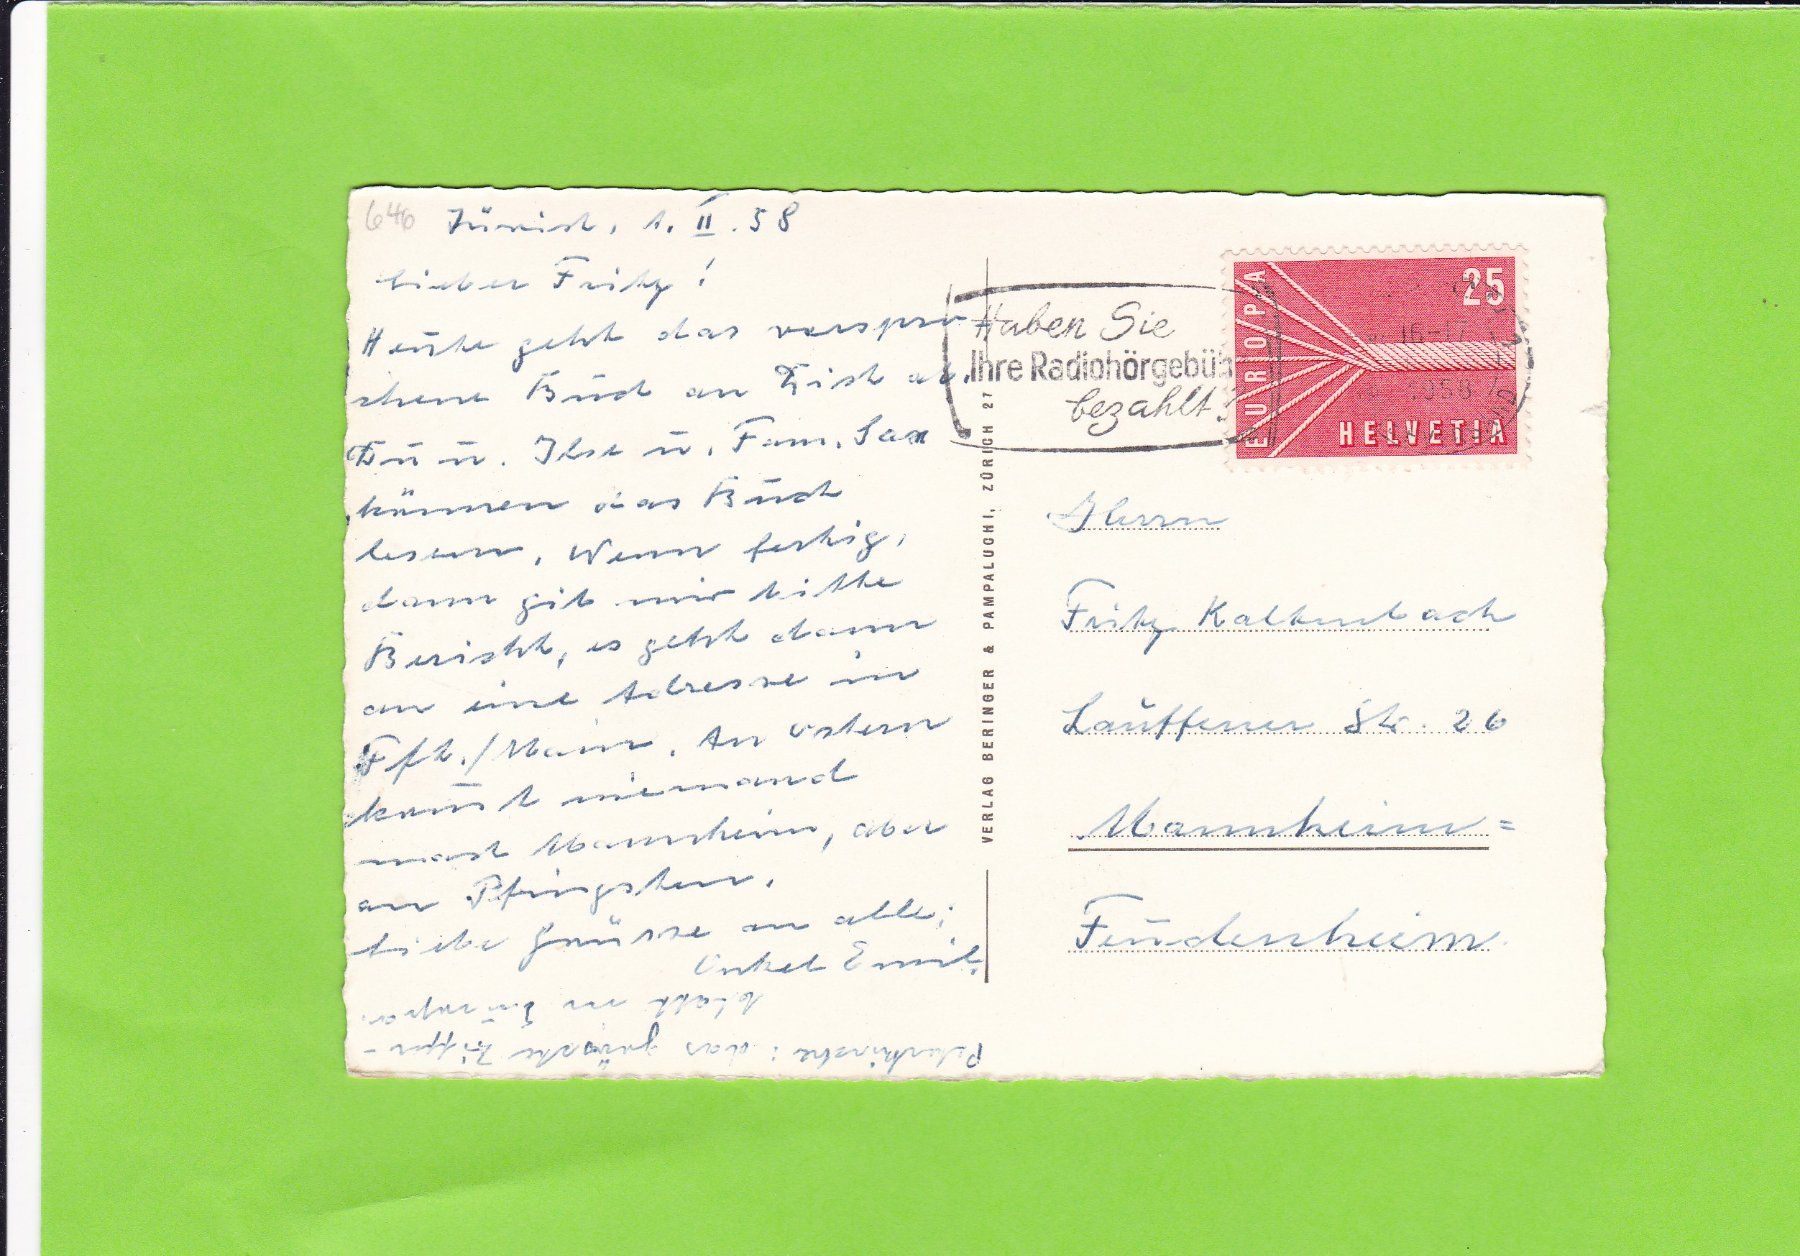 646
Zürich, 1. II. 58
Lieber Fritz!
Heute geht das verspro-
chene Buch an Dich ab.
Du u. Ilse u. Fam. Sax
können das Buch
lesen. Wenn fertig,
dann gib mir bitte
Bericht, es geht dann
an eine Adresse in
Fft./Main. An Ostern
kommt niemand
nach Mannheim, aber
an Pfingsten.
Liebe Grüsse an alle:
Onkel Emil.
Peterskirche: das grösste Ziffer-
blatt in Europa.
VERLAG BERINGER & PAMPALUCHI, ZÜRICH 27
Haben Sie
Ihre Radiohörgebüh
bezahlt?
EUROPA
25
HELVETIA
16-17
1958
Herrn
Fritz Kaltenbach
Lauffener Str. 26
Mannheim=
Feudenheim